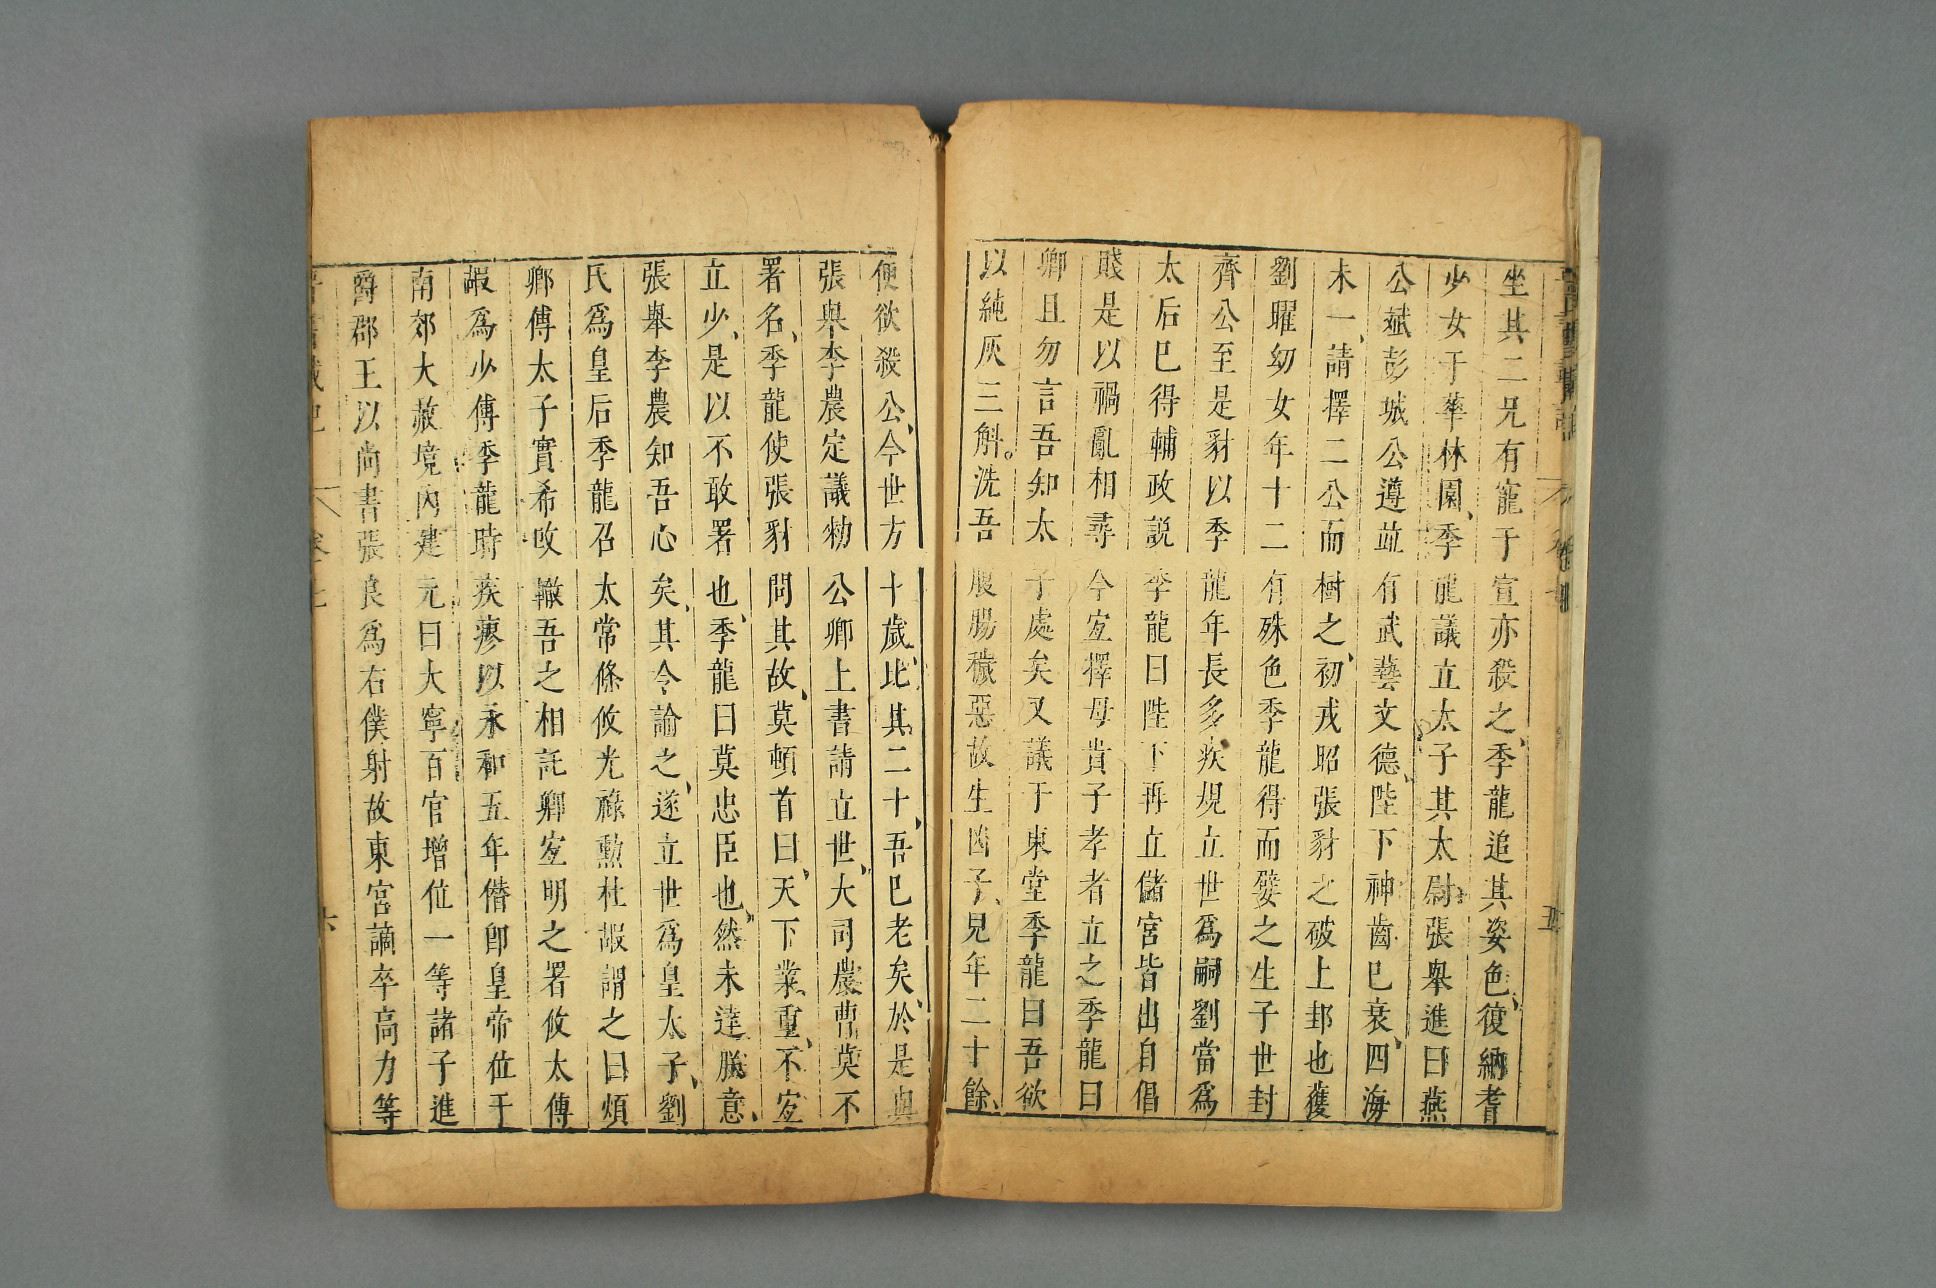 坐其二兄有寵于宣亦殺之季龍追其姿色復納耆
少女于華林園季龍議立太子其太尉張舉進曰燕
公斌彭城公遵竝有武藝文德陛下神齒已衰四海
未一請擇二公而樹之初戎昭張豺之破上邽也獲
劉曜幼女年十二有殊色季龍得而嬖之生子世封
齊公至是豺以季龍年長多疾規立世爲嗣劉當爲
太后已得輔政說季龍曰陛下再立儲宮皆出自倡
賤是以禍亂相尋今宐擇母貴子孝者立之季龍曰
卿且勿言吾知太子處矣又議于東堂季龍曰吾欲
以純灰三斛洗吾腹腸穢惡故生凶子兒年二十餘
便欲殺公今世方十歲比其二十吾已老矣於是與
張舉李農定議勑公卿上書請立世大司農曹莫不
署名季龍使張豺問其故莫頓首曰天下業重不宐
立少是以不敢署也季龍曰莫忠臣也然未達朕意
張舉李農知吾心矣其令諭之遂立世爲皇太子劉
氏爲皇后季龍召太常條攸光祿勳杜嘏謂之曰煩
卿傅太子實希改轍吾之相託卿宐明之署攸太傅
嘏爲少傅季龍時疾瘳以永和五年僭卽皇帝位于
南郊大赦境內建元曰大寧百官增位一等諸子進
爵郡王以尚書張良爲右僕射故東宮謫卒高力等
六